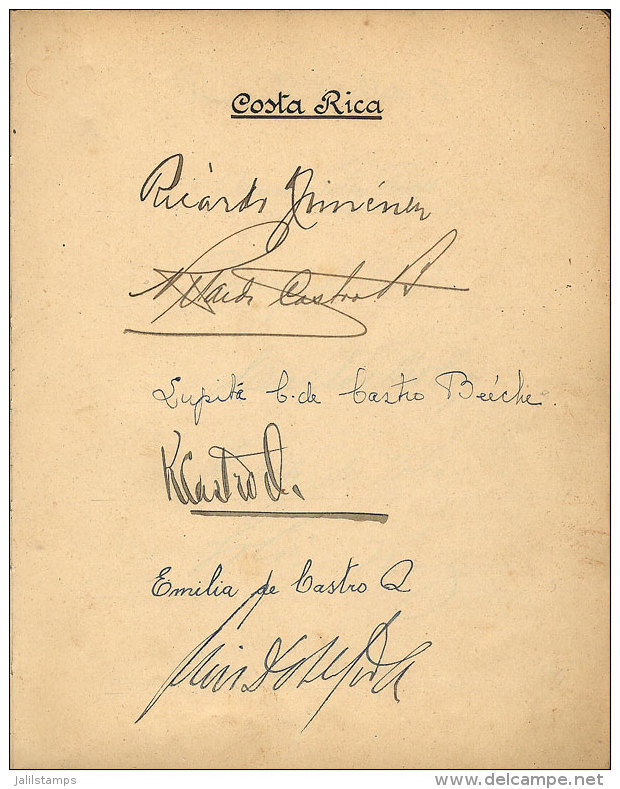 Costa Rica
Ricardo Jiménez
Castro B
Lupita C. de Castro Beéche.
R Castro Q.
Emilia de Castro Q
Luis
jalilstamps
delcampe.net